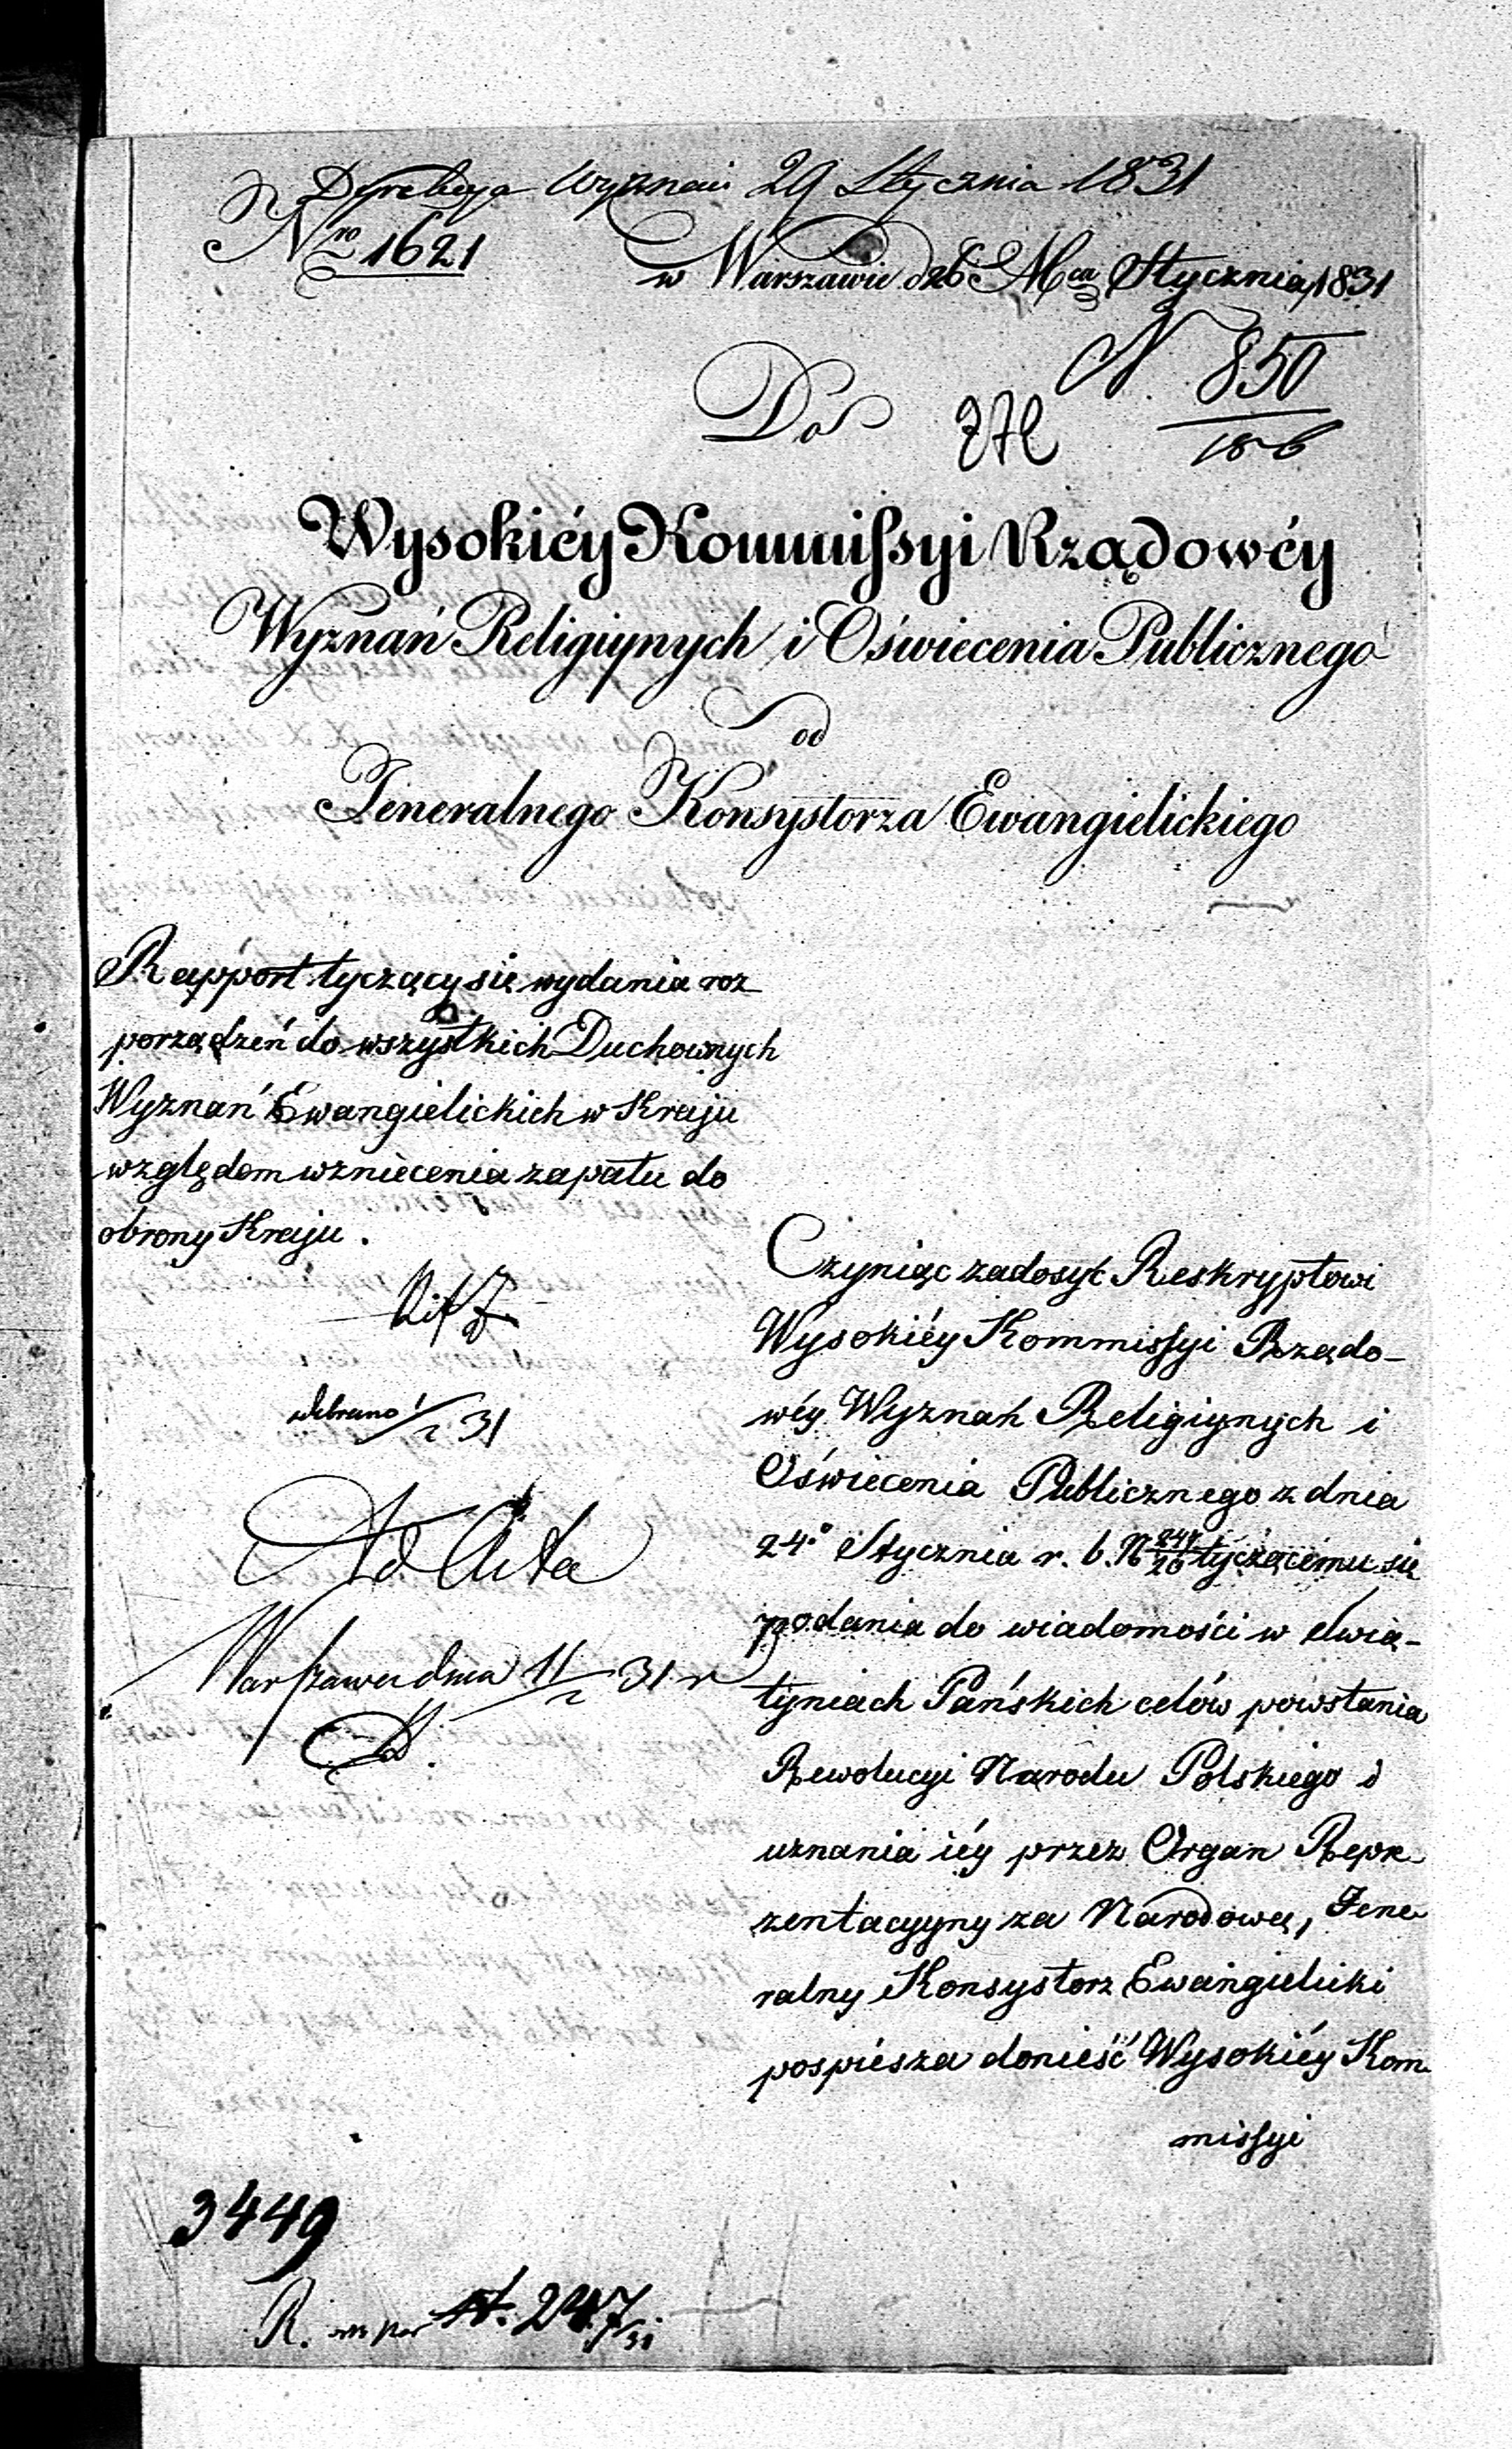 Dyrekcya Wyznań 29 Stycznia 1831
Nro 1621
w Warszawie d 26 Mca Stycznia 1831
N. 850
186
Do
Wysokiéy Kommissyi Rządowéy
Wyznań Religiynych i Oświecenia Publicznego
od
Jeneralnego Konsystorza Ewangielickiego
Rapport tyczący się wydania roz
porządzeń do wszystkich Duchownych
Wyznań Ewangielickich w Kraju
względem wzniecenia zapału do
obrony Kraju.
odebrano 1/2 31
Ad Acta
Warszawa dnia 11/2 31 r
Czyniąc zadosyć Reskryptowi
Wysokiéy Kommissyi Rządo-
wéy Wyznań Religiynych i
Oświecenia Publicznego z dnia
24o Stycznia r. b. N 247/26 tyczącemu się
podania do wiadomości w Swią-
tyniach Pańskich celów powstania
Rewolucyi Narodu Polskiego i
uznania iéy przez Organ Repre
zentacyyny za Narodową, Jene
ralny Konsystorz Ewangielicki
pospiesza donieść Wysokiéy Kom
missyi
3449
R. 247/31